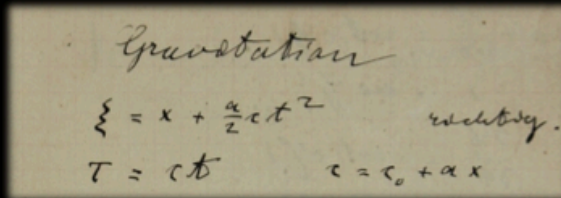 Gravitation
ξ = x + a/2 c t² richtig.
T = c t c = c₀ + a x